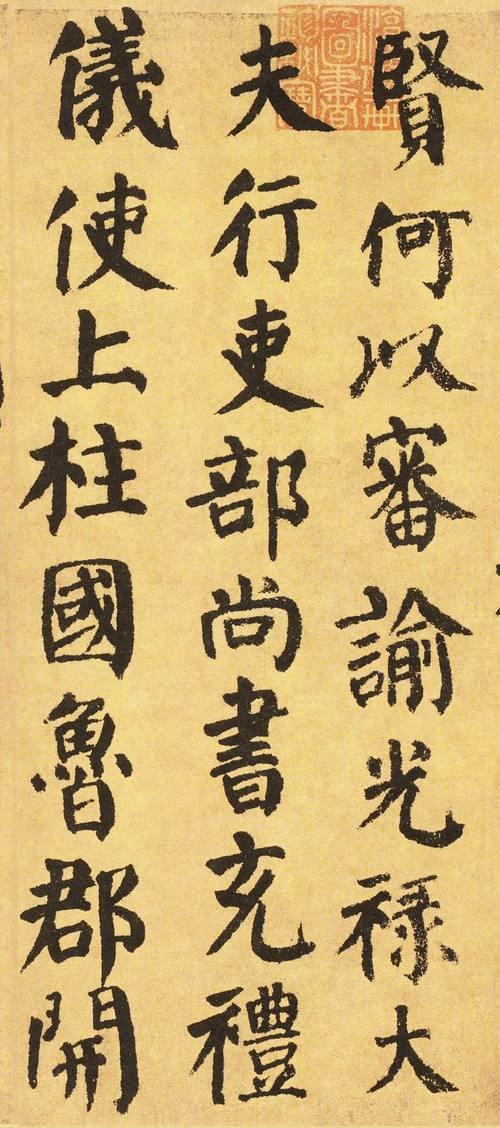 賢何以審諭光禄大
夫行吏部尚書充禮
儀使上柱國魯郡開